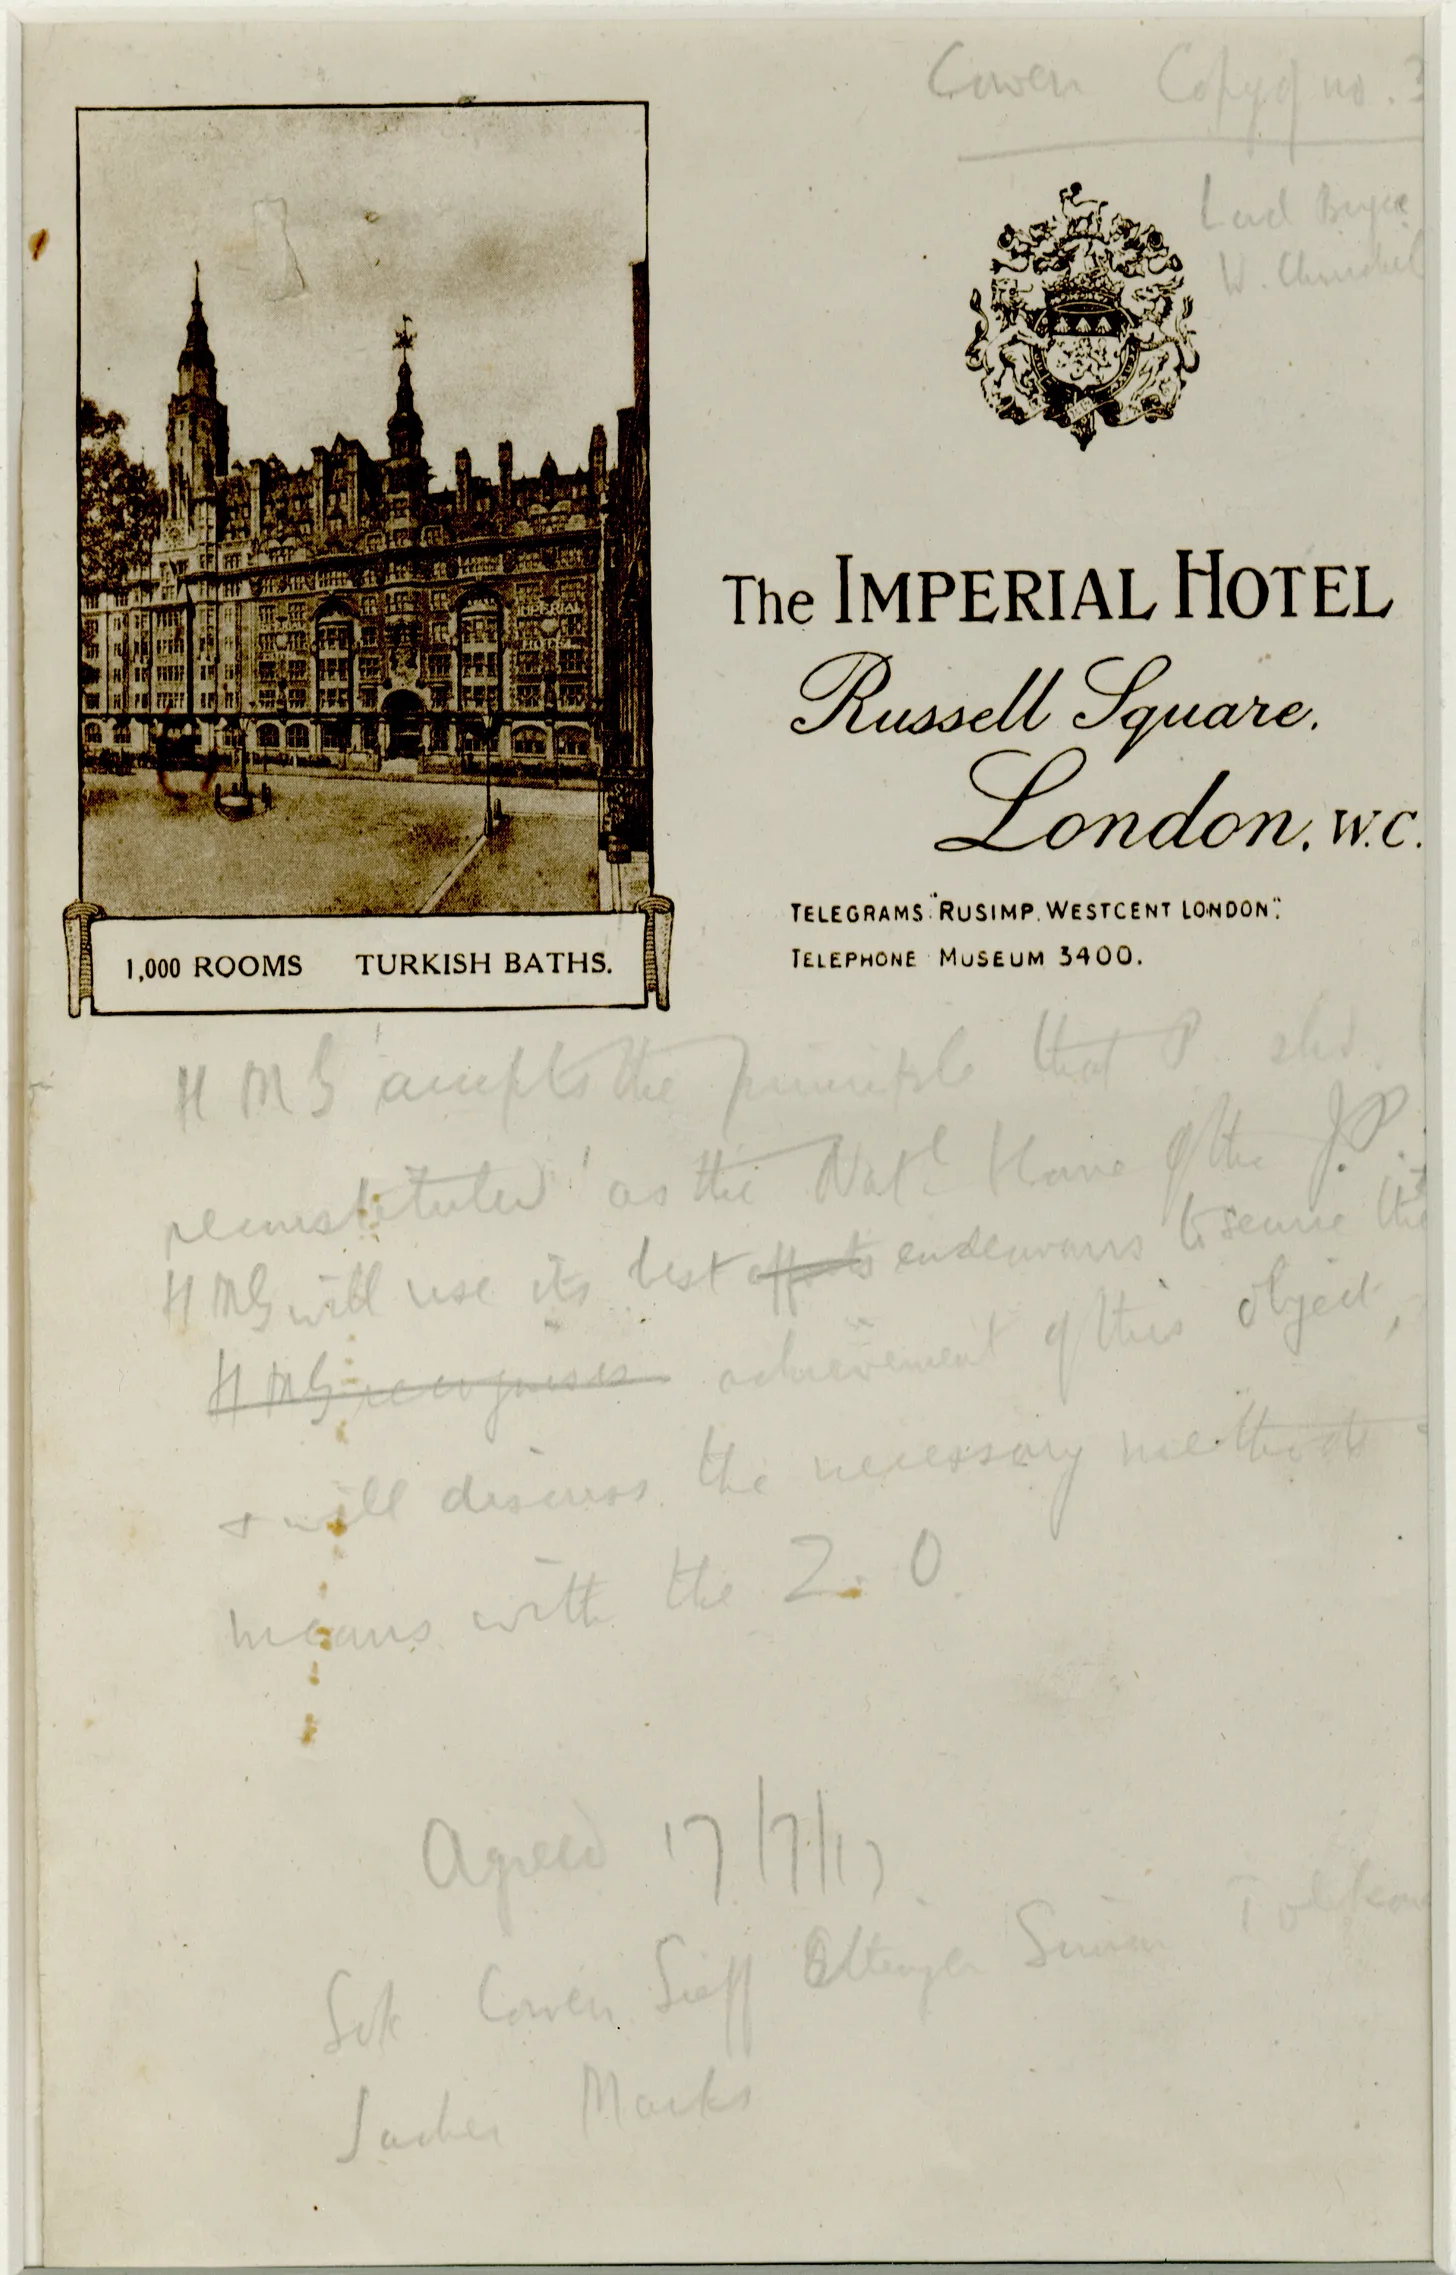 Cowen Copy of no. 3
Lord Bryce
W. Churchill
The IMPERIAL HOTEL
Russell Square.
London. W.C.
TELEGRAMS "RUSIMP. WESTCENT LONDON".
TELEPHONE MUSEUM 3400.
IMPERIAL
1,000 ROOMS TURKISH BATHS.
H M G accepts the principle that P. shd.
reconstituted as the Natl Home of the J.P.
HMG will use its best efforts endeavours to secure the
HMG recognises achievement of this object,
& will discuss the necessary methods
means with the Z. O.
Agreed 17/7/17
Sok Cowen Sieff Ettinger Simon Tolkowsky
Sacher Marks